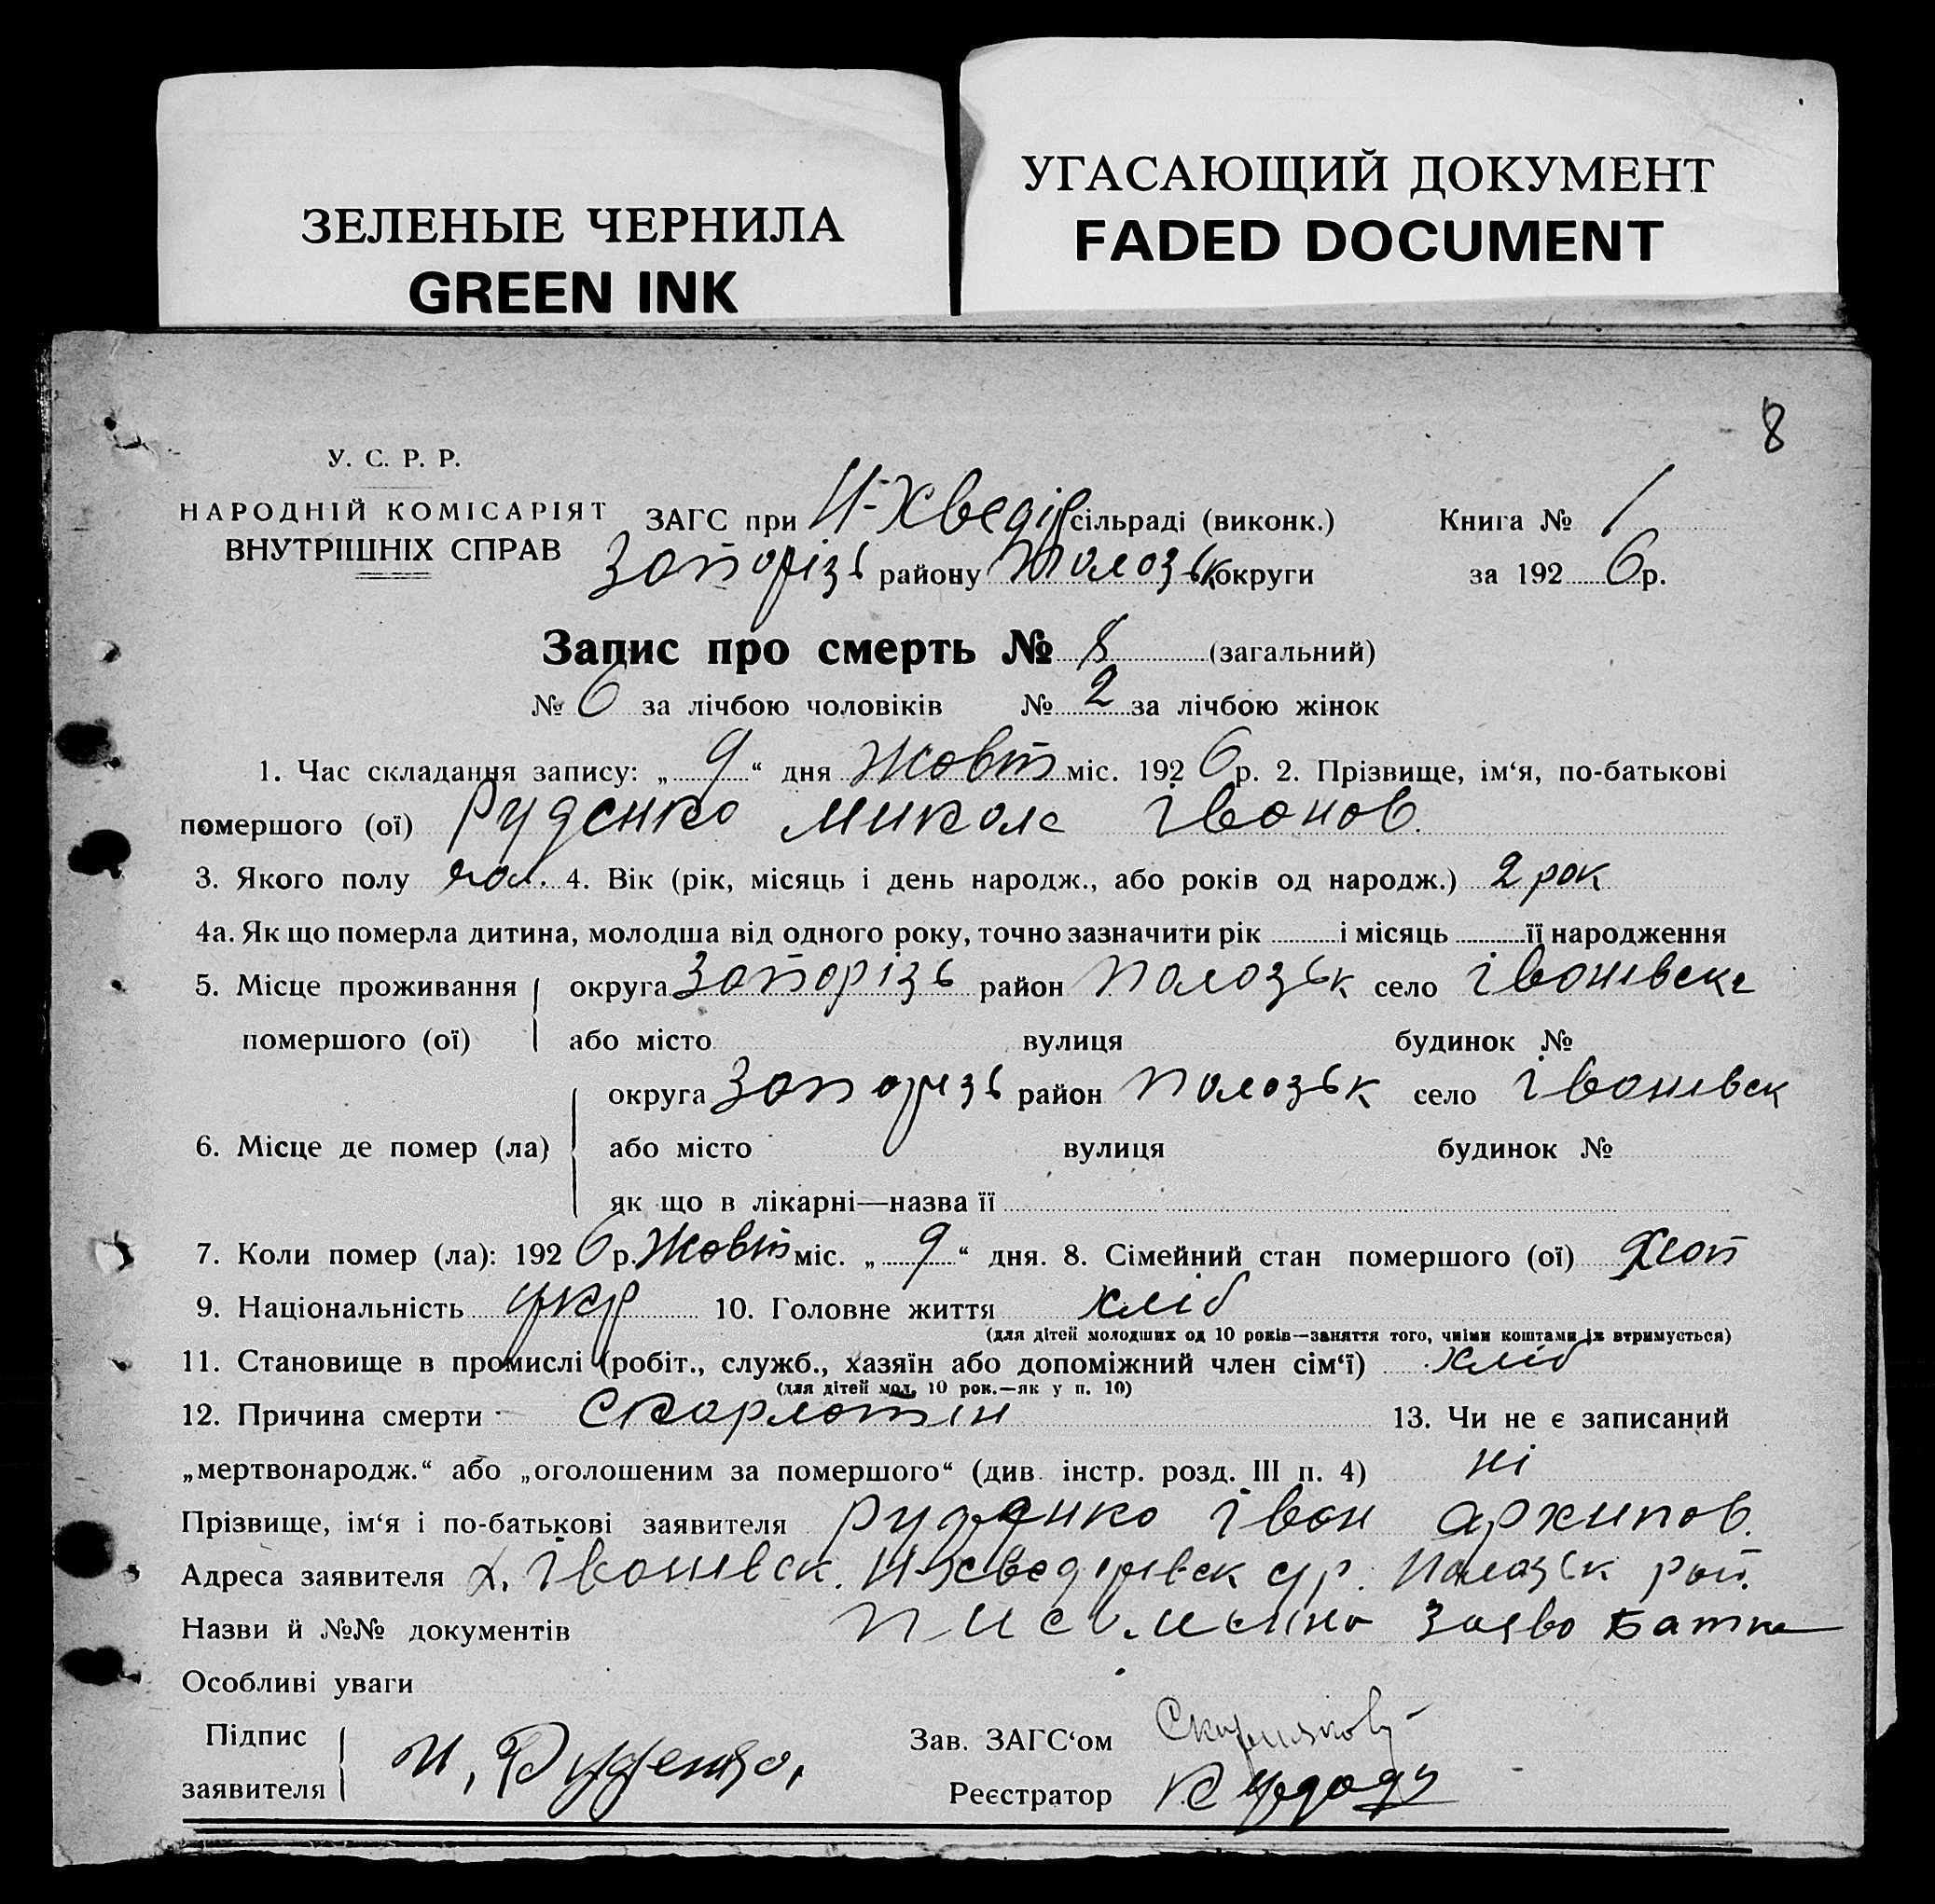 ЗЕЛЕНЫЕ ЧЕРНИЛА
GREEN INK
УГАСАЮЩИЙ ДОКУМЕНТ
FADED DOCUMENT
8
У. С. Р. Р.
НАРОДНІЙ КОМІСАРІЯТ
ВНУТРІШНІХ СПРАВ
ЗАГС при Н-Хведір сільраді (виконк.) Книга № 1
Запорізь району Полозьк округи за 1926 р.
Запис про смерть № 8 (загальний)
№ 6 за лічбою чоловіків № 2 за лічбою жінок
1. Час складання запису: „ 9 “ дня Жовт міс. 1926 р. 2. Прізвище, ім‘я, по-батькові
помершого (ої) Руденко Микола Іванов.
3. Якого полу чол. 4. Вік (рік, місяць і день народж., або років од народж.) 2 рок
4а. Як що померла дитина, молодша від одного року, точно зазначити рік і місяць її народження
5. Місце проживання округа Запорізь район Полозьк село Іванівска
помершого (ої) або місто вулиця будинок №
округа Запорізь район Полозьк село Іванівск
6. Місце де помер (ла) або місто вулиця будинок №
як що в лікарні—назва її
7. Коли помер (ла): 1926 р. Жовт міс. „ 9 “ дня. 8. Сімейний стан помершого (ої)
9. Національність укр 10. Головне життя хліб
(для дітей молодших од 10 років—заняття того, чиїми коштами їх втримується)
11. Становище в промислі (робіт., служб., хазяїн або допоміжний член сім‘ї) хліб
(для дітей мол. 10 рок.—як у п. 10)
12. Причина смерти Скарлатін 13. Чи не є записаний
„мертвонародж.“ або „оголошеним за помершого“ (див. інстр. розд. III п. 4) ні
Прізвище, ім‘я і по-батькові заявителя Руденко Іван Архипов.
Адреса заявителя х. Іванівск. Н-Хведорівск с/р. Полозьк рай.
Назви й №№ документів письмена заява Батька
Особливі уваги
Підпис заявителя И. Руденко,
Зав. ЗАГС‘ом
Реєстратор